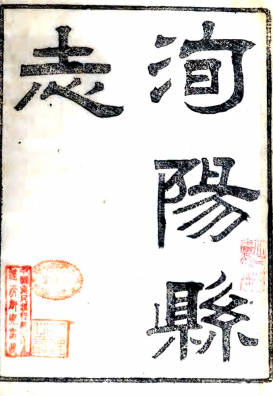 洵陽縣
志